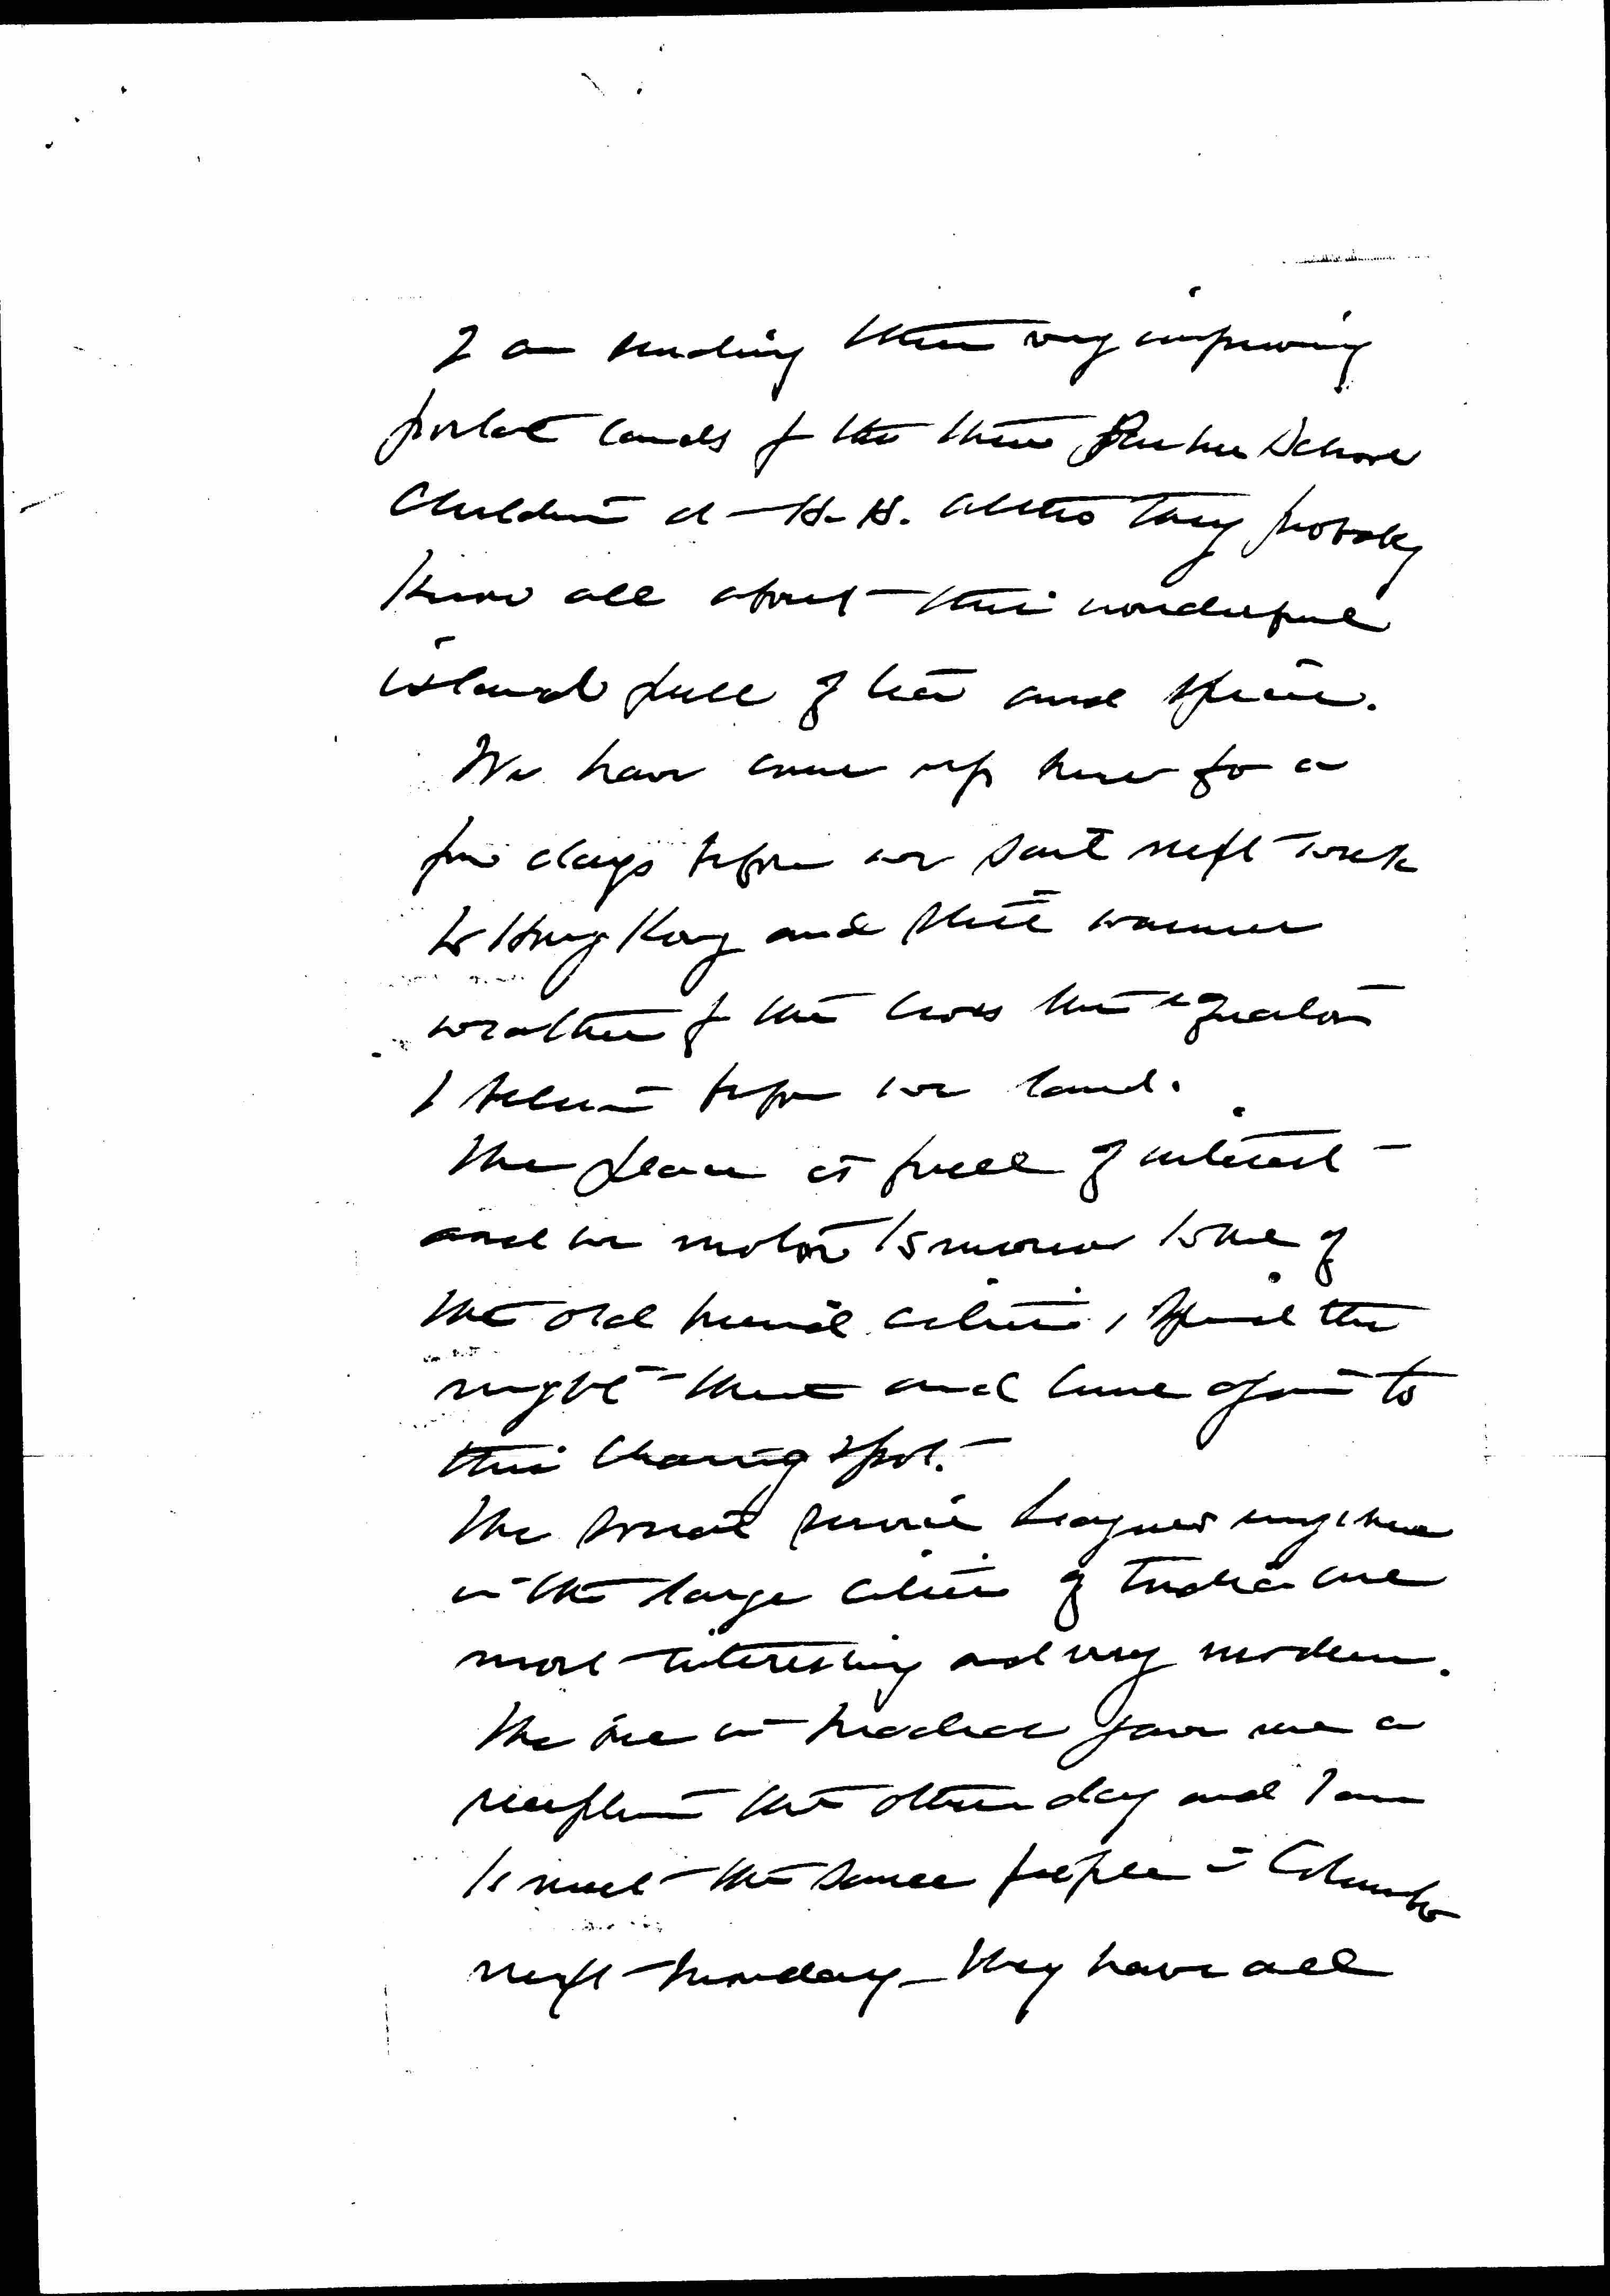 I am sending these very improving
postal cards for the three Parker School
Children at H. H. altho they probably
know all about this wonderful
island full of tea and spice.
We have come up here for a
few days before we sail next week
to Hong Kong and still warmer
weather for we cross the equator
I believe before we land.
The place is full of interest
and we motor tomorrow to one of
the old buried cities, spend the
night there and come again to
this charming spot.
The Social Service Leagues
in the large cities of India are
most interesting and very modern.
The one in Madras gave me a
reception the other day and I am
to meet the same people in Colombo
next Monday - They have all